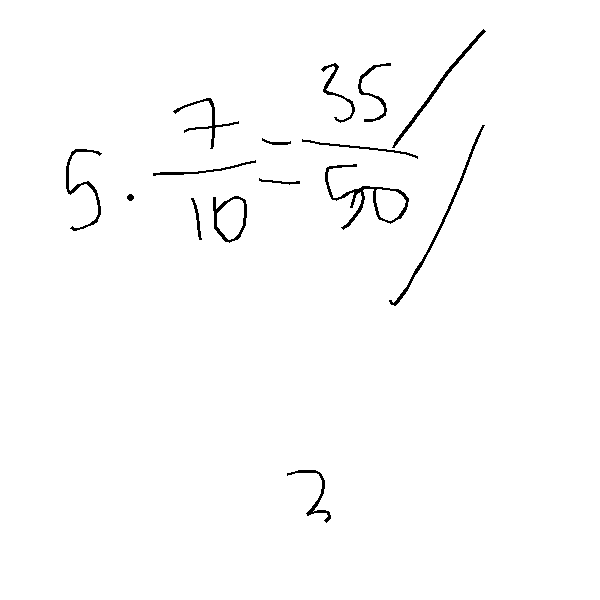 5 · 7/10 = 35/50
2